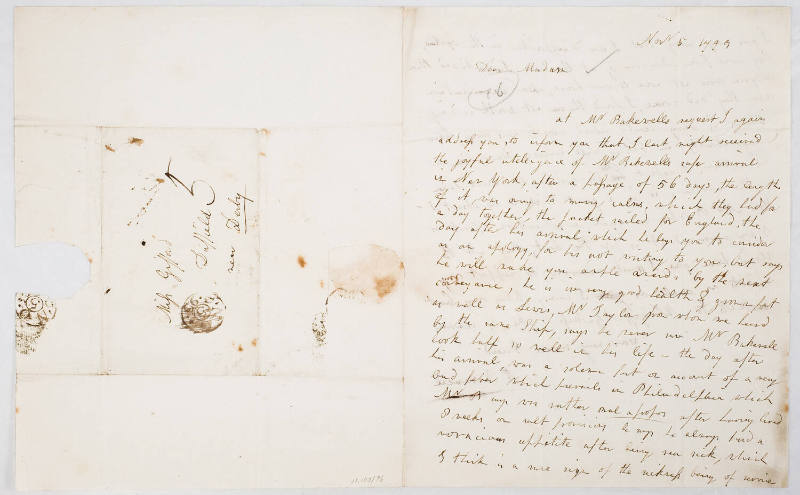 Miss Gifford
Duffield
near Derby
5
Novr 5 1799
Dear Madam
at Mr Bakewells request I again
address you, to inform you that I last night received
the joyful intelligence of Mr Bakewells safe arrival
in New York, after a passage of 56 days, the length
of it was owing to many calms, which they had for
a day together, the packet sailed for England, the
day after his arrival, which he begs you to consider
as an apology, for his not writing to you, but says
he will make you ample amends by the next
conveyance, he is in very good health & grown fat
as well as Lewis, Mr Taylor from whom we heard
by the same Ship, says he never saw Mr Bakewell
look half so well in his life – the day after
his arrival, was a solemn fast on account of a very
bad fever which prevails in Philadelphia which
Mr B says was rather mal apropos after having lived
8 weeks on salt provisions he says he always had a
voracious appetite after being sea sick, which
I think is a sure sign of the sickness being of service